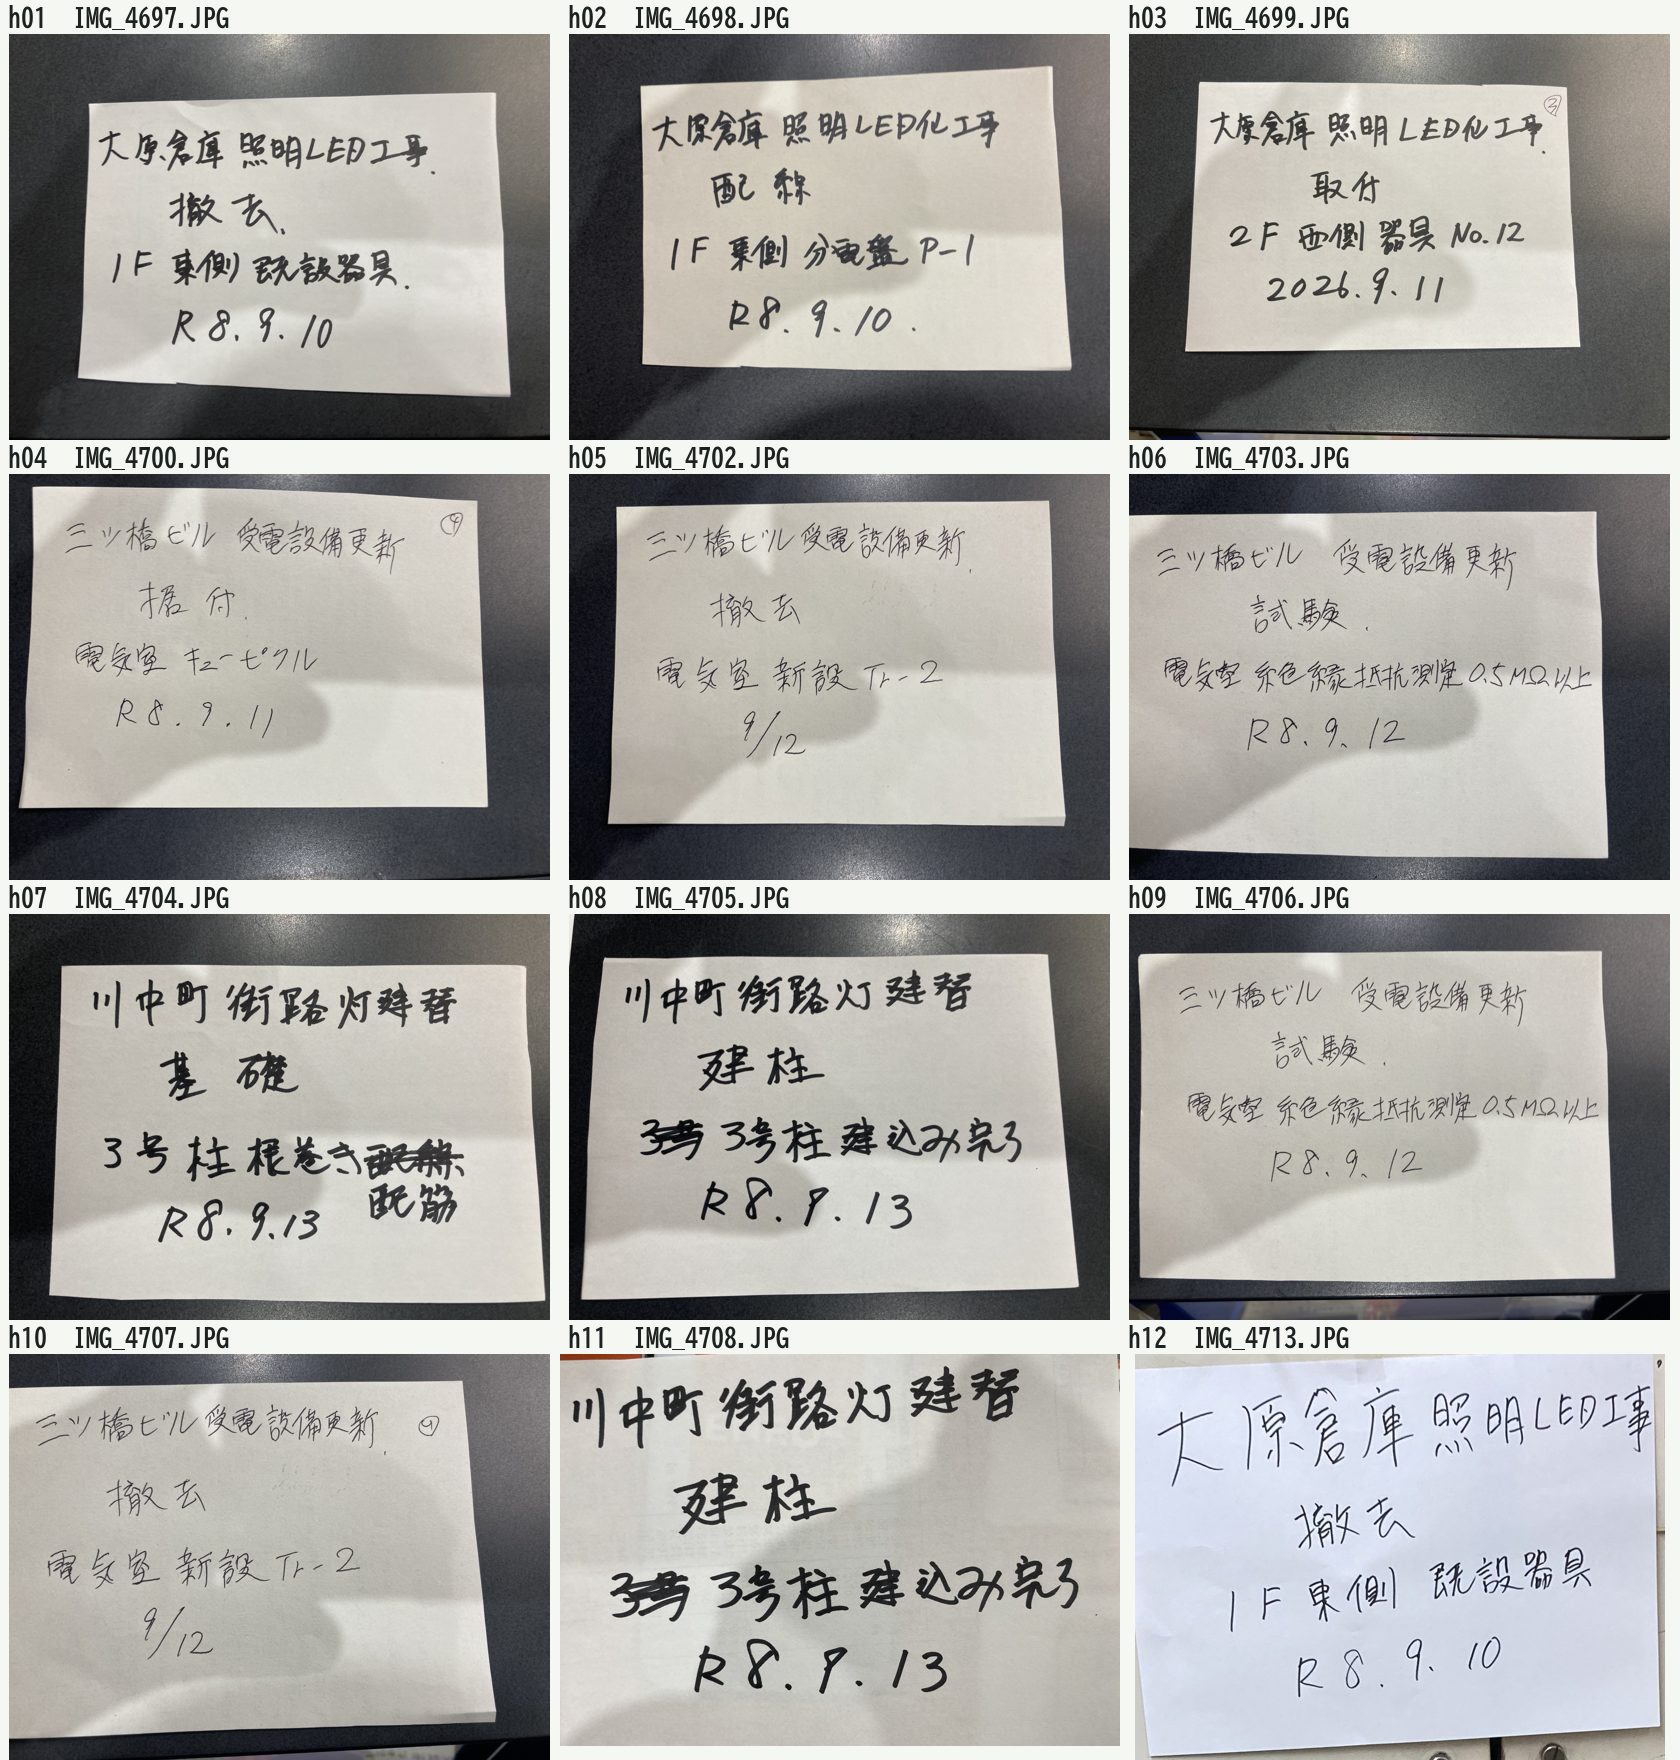 h01 IMG_4697.JPG
大原倉庫 照明LED工事.
撤去.
1F 東側 既設器具.
R8.9.10
h02 IMG_4698.JPG
大原倉庫 照明LED化工事
配線
1F 東側 分電盤 P-1
R8.9.10.
h03 IMG_4699.JPG
③
大原倉庫 照明LED化工事.
取付
2F 西側 器具 No.12
2026.9.11
h04 IMG_4700.JPG
④
三ツ橋ビル 受電設備更新
据付.
電気室 キュービクル
R8.9.11
h05 IMG_4702.JPG
三ツ橋ビル 受電設備更新.
撤去
電気室 新設 Tr-2
9/12
h06 IMG_4703.JPG
三ツ橋ビル 受電設備更新
試験.
電気室 絶縁抵抗測定 0.5MΩ以上
R8.9.12
h07 IMG_4704.JPG
川中町 街路灯建替
基礎
3号柱 根巻き
配筋
R8.9.13
h08 IMG_4705.JPG
川中町 街路灯 建替
建柱
3号柱 建込み完了
R8.9.13
h09 IMG_4706.JPG
三ツ橋ビル 受電設備更新
試験.
電気室 絶縁抵抗測定 0.5MΩ以上
R8.9.12
h10 IMG_4707.JPG
三ツ橋ビル 受電設備更新.
撤去
電気室 新設 Tr-2
9/12
h11 IMG_4708.JPG
川中町 街路灯 建替
建柱
3号柱 建込み完了
R8.9.13
h12 IMG_4713.JPG
大原倉庫 照明LED工事
撤去
1F 東側 既設器具
R8.9.10